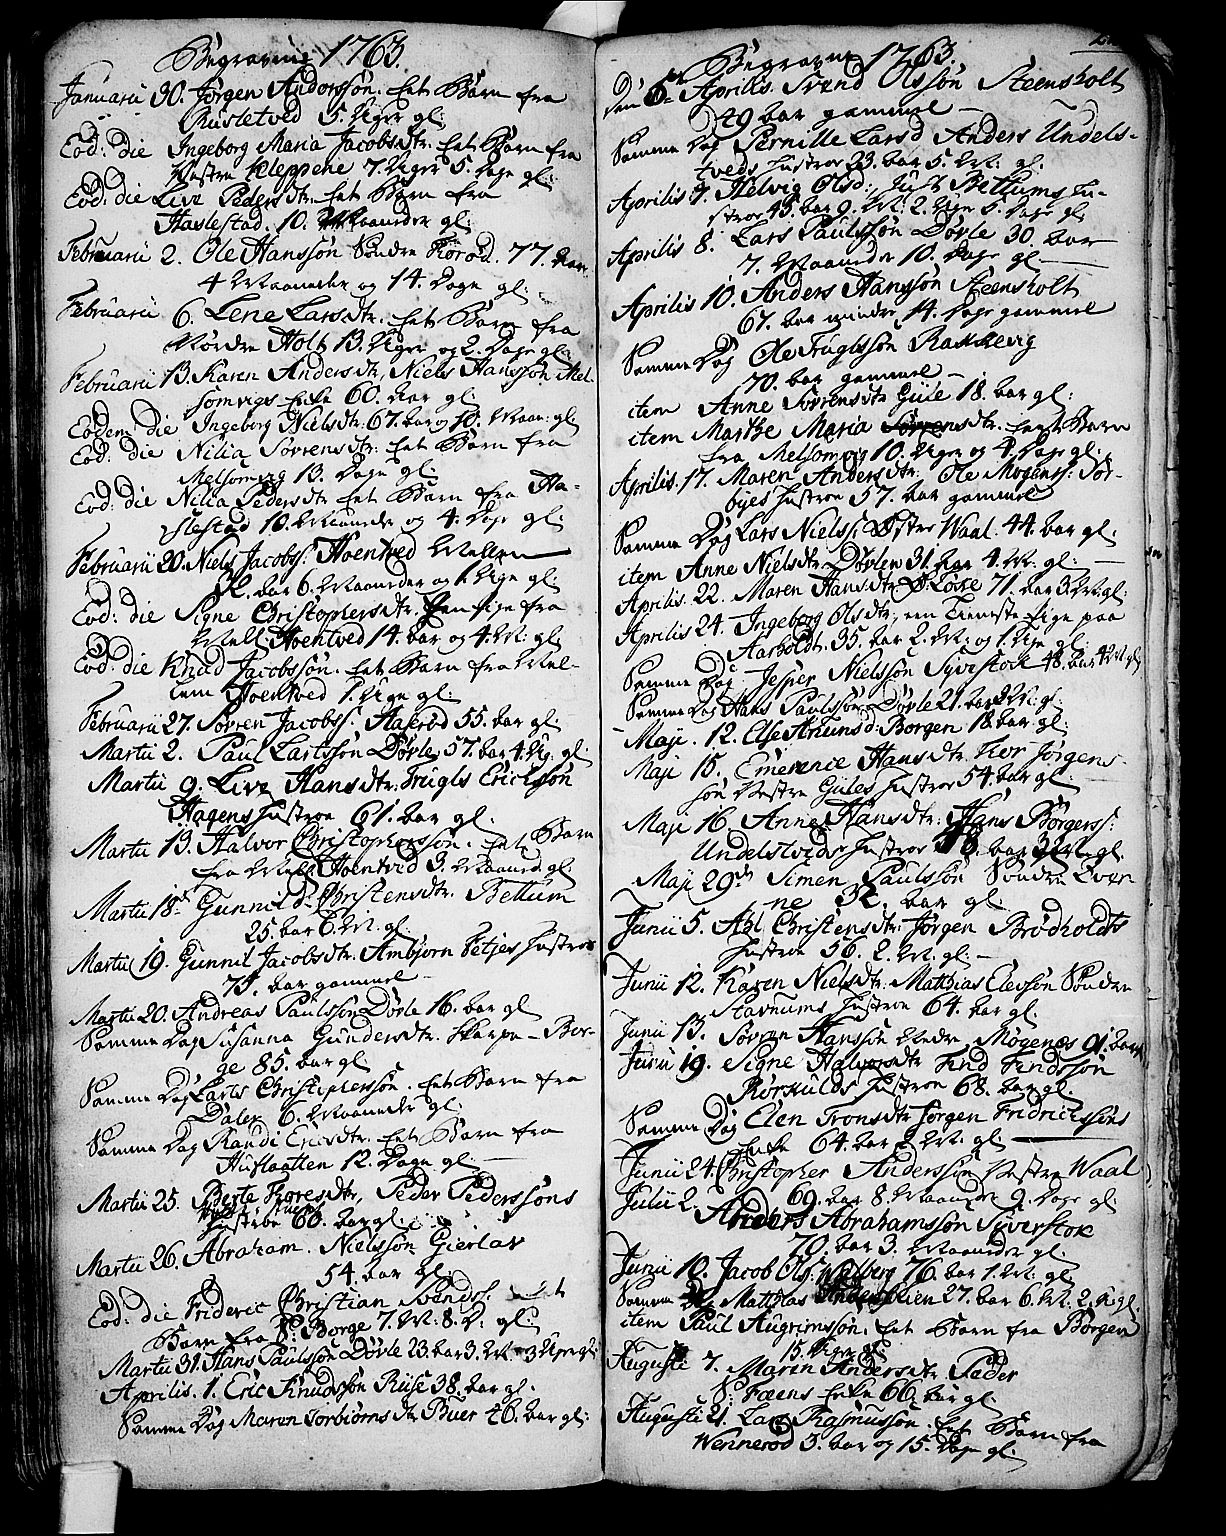 Begravne 1763.
Januarii 30. Jørgen Andorssøn. Eet Barn fra
Rusletved 5. Uger gl:
Eod: die Ingeborg Maria Jacobsdtr. Eet Barn fra
Westre Kleppene 7. Uger 5. Dage gl:
Eod: die Live Pedersdtr. Eet Barn fra
Haslestad. 10. Maaneder gl:
Februarii 2. Ole Hanssøn Søndre 77. Aar
4 Maaneder og 14. Dage gl:
Februarii 6. Lene Larsdtr. Eet Barn fra
Nordre Holt 13. Uger og 2. Dage gl:
Februarii 13. Karen Andersdtr, Niels Hanssøn Mel-
somvigs Enke 60. Aar gl:
Eodem die Ingeborg Nielsdtr 67. Aar og 10. Maan: gl:
Eod: die Nilia Sørensdtr. Eet Barn fra
Melsomvig 13. Dage gl:
Eod: die Nilia Pedersdtr Eet Barn fra Ha-
slestad 10. Maaneder og 4. Dage gl:
Februarii 20. Niels Jacobss: Hoentved Mellem
Aar 6. Maaneder og 1. Uge gl:
Eod: die Signe Christophersdtr. Pen fra
Mell: Hoentved 14. Aar og 4. M: gl:
Eod: die Knud Jacobssøn. Eet Barn fra Mel-
lem Hoentved 1. Uge gl:
Februarii 27. Søren Jacobss: Aakerød 55. Aar gl:
Martii 2. Paul Larssøn Døvle 57. Aar 4. Ug. gl:
Martii 9. Live Hansdtr. Trugls Erichssøn
Hagens Hustroe 61. Aar gl:
Martii 13. Halvor Christopherssøn. Eet Barn
fra Mell: Hoentved 3. Maaned. gl:
Martii 18. Gunnild Christensdtr. Bettum
25. Aar 6. M. gl:
Martii 19. Gunnil Jacobsdtr. Ambjørn Hustroe
75. Aar gammel
Martii 20. Andreas Paulssøn Døvle 16. Aar gl:
Samme Dag Susanna Gundersdtr. Skarpe-Bor-
ge 85. Aar gl:
Samme Dag Lars Christopherssøn. Eet Barn fra
Dalen 6. Maaneder gl:
Samme Dag Randi Ericsdtr. Eet Barn fra
Huslaatten 12. Dage gl:
Martii 25. Berte Toresdtr, Peder Pederssøns
Hustroe 60. Aar gl:
Martii 26. Abraham. Nielssøn Gierlar
54. Aar gl:
Eod: die Frideric Christian Svends: Eet
Barn fra S: Borge 7. M. 8. D: gl:
Martii 31. Hans Paulssøn Døvle 23. Aar 3. M. 3 Uger gl:
Aprilis. 1. Eric Knudssøn Riise 38. Aar gl.
Samme Dag Maren Torbiørnsdtr Buer 46. Aar gl:
Begravne 1763.
Den 6te Aprilis. Svend Olssøn Steensholt
49 Aar gammel
Samme Dag Pernille Larsd Anders Undels-
tveds Hustroe 23. Aar 5. M: gl:
Aprilis 7. Helvig Olsd: Just Bettums Hu-
stroe 45. Aar 9. M. 2. Uger 5. Dage gl:
Aprilis 8. Lars Paulssøn Døvle 30. Aar
7. Maaneder 10. Dage gl:
Aprilis 10. Anders Hanssøn Steensholt
67. Aar mindre 14. Dage gammel
Samme Dag Ole Truglssøn Rakkevig
70. Aar gammel
item Anne Sørensdtr Guile 18. Aar gl:
item Marthe Maria Sørensdtr. Eet Barn
fra Melsomvig 10. Uger og 4. Dage gl:
Aprilis. 17. Maren Andersdtr. Ole Mogenss:
Hustroe 57. Aar gammel
Samme Dag Lars Nielss: Østre Waal. 44. Aar gl:
item Anne Nielsdtr. Døvlen 31. Aar 4. M: gl:
Aprilis. 22. Maren Hansdtr 71. Aar 3. M. gl:
Aprilis 24. Ingeborg Olsdtr, een Tieneste Pige paa
Aarholdt. 35. Aar 2. M: og 1. Uge gl:
Samme Dag Jesper Nielssøn Syverstoe 48. Aar 4 M gl
Samme Dag Hans Paulssøn Døvle 21. Aar M. gl:
Maji. 12. Else Amunsd: Borgen 18. Aar gl:
Maji 15. Emerence Hansdtr. Tor Jørgens-
søn Vestre Guiles Hustroe 54. Aar gl:
Maji 16. Anne Hansdtr. Hans Børgerss:
Undelstveds Hustroe Aar 3 M. gl:
Maji 29de Simen Paulssøn Søndre
ne 32. Aar gl:
Junii 5. Abl Christensdtr. Jørgen Brødholdts
Hustroe 56. 2. M. gl:
Junii 12. Karen Nielsdtr. Matthias Elevsøn Søndre
Stavnums Hustroe 64. Aar gl:
Junii 13. Sørren Hanssøn Nedre Møgenøs 91. Aar gl
Junii 19. Signe Halvorsdtr Find Findssøn
Rørkulds Hustroe 68. Aar gl:
Samme Dag Elen Tronsdtr Jørgen Fridrichssøns
Enke 64. Aar 2. M. gl:
Junii 24. Christopher Anderssøn Vestre Waal
69. Aar 8. Maaneder 9. Dage gl:
Julii 2. Anders Abrahamssøn Syverstoe
70. Aar 3. Maaneder gl:
Junii 10. Jacob Ols: Welberg 76. Aar 1. M. gl:
Samme Dag Matthias 27. Aar 6. M. 2. U. gl:
item Paul Augrimssøn. Eet Barn fra Borgen
15. Uger gl:
Augusti 7. Maren Andersdtr Peder
S: Foeens Enke 66. Aar gl:
Augusti 21. Lars Rasmussøn. Eet Barn fra
Wennerød 3. Aar og 15. Dage gl: